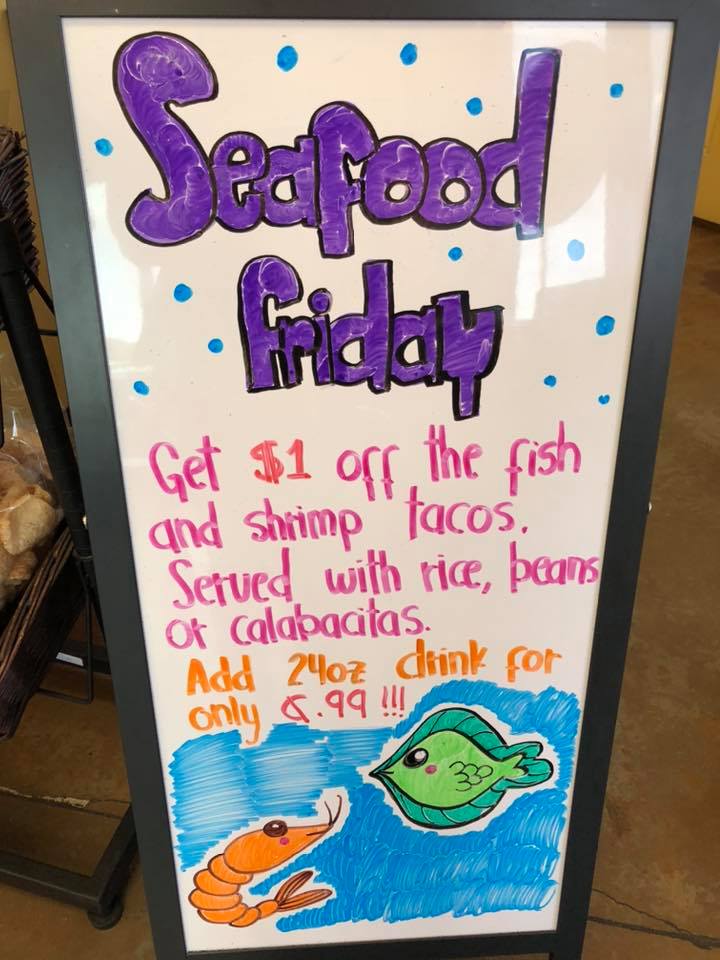 Seafood
friday
Get $1 off the fish
and shrimp tacos.
Served with rice, beans
or calabacitas.
Add 24oz drink for
only ¢.99 !!!